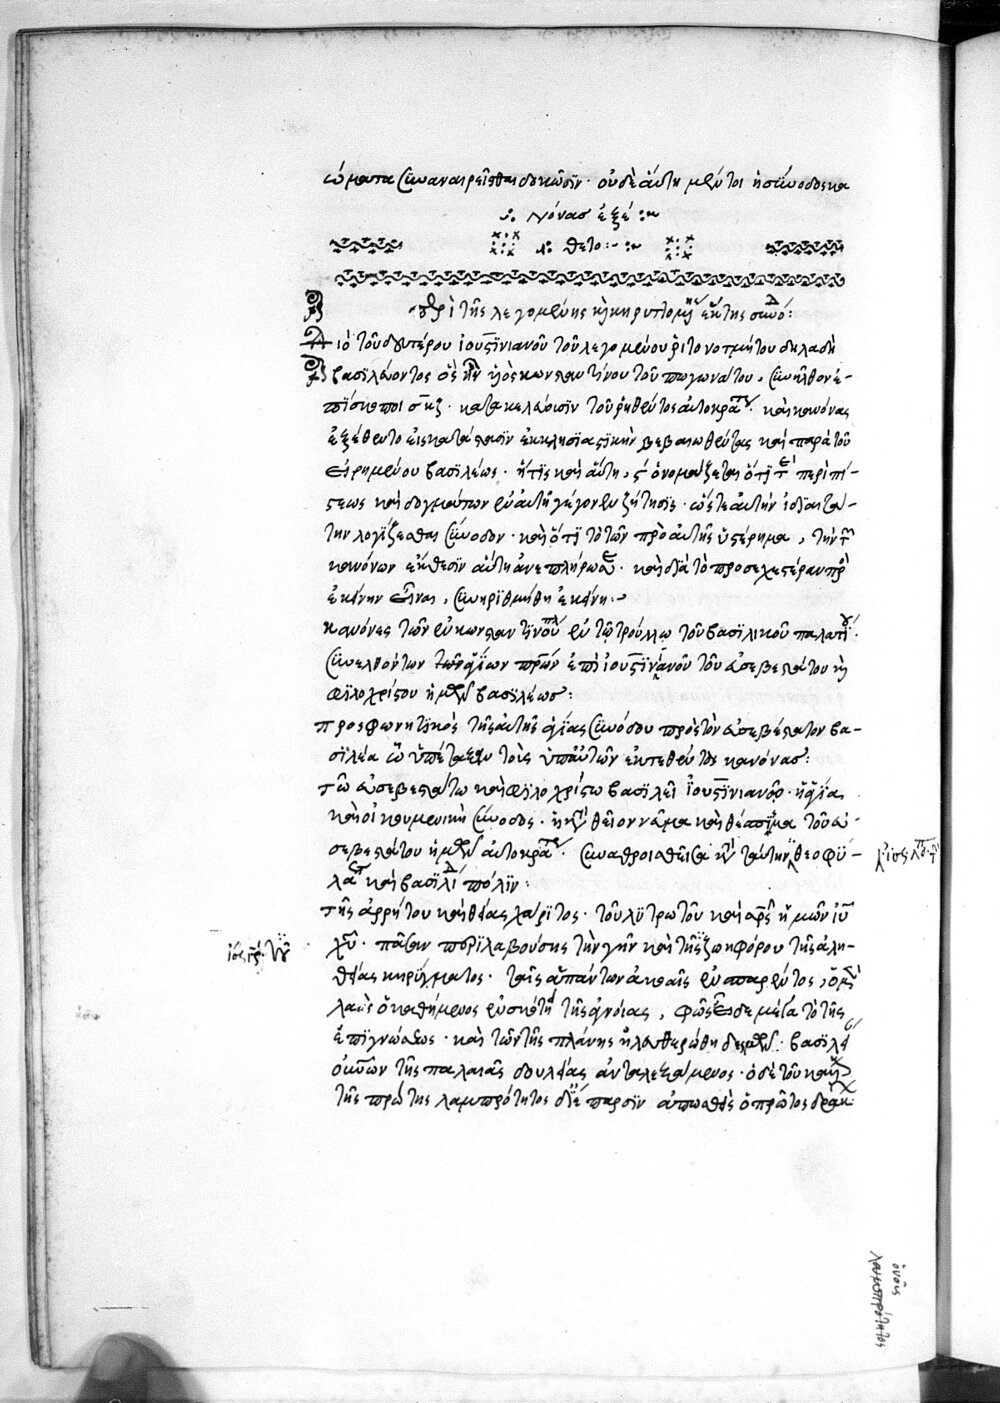 σώματα συναναιρεῖσθαι δοκῶσιν· οὐδὲ αὕτη μέντοι ἡ σύνοδος κα
νόνας ἐξέ
θετο
περὶ τῆς λεγομένης καὶ κηρυττομένης ἕκτης συνόδ:
Διὸ τοῦ δευτέρου ἰουστινιανοῦ τοῦ λεγομένου ῥινοτμήτου δηλαδὴ
βασιλεύοντος ὃς ἦν υἱὸς κωνσταντίνου τοῦ πωγωνάτου, συνῆλθον ἐ-
πίσκοποι σκζ· κατὰ κέλευσιν τοῦ ῥηθέντος αὐτοκρά· καὶ κανόνας
ἐξέθεντο εἰς κατάστασιν ἐκκλησιαστικὴν βεβαιωθέντας καὶ παρὰ τοῦ
εἰρημένου βασιλέως· ἥτις καὶ αὕτη, ς ὀνομάζεται ὅτι περὶ πί-
στεως καὶ δογμάτων ἐν αὐτῇ γέγονεν ζήτησις· ὥστε αὐτὴν ἰδίαν ταύ-
την λογίζεσθαι σύνοδον· καὶ ὅτι τὸ τῶν πρὸ αὐτῆς ὑστέρημα, τὴν τ
κανόνων ἔκθεσιν αὕτη ἀνεπλήρωσε· καὶ διὰ τὸ προσεχεστέραν πρὸ
ἐκείνην εἶναι, συνηριθμήθη ἐκείνη:
κανόνες τῶν ἐν κωνσταντινου πλ ἐν τῷ τρούλλῳ τοῦ βασιλικοῦ παλατί·
συνελθόντων τῶν ἁγίων πρων ἐπὶ ἰουστινιανοῦ τοῦ εὐσεβεστάτου καὶ
φιλοχρίστου ἡμῶν βασιλέως:
προσφωνητικὸς τῆς αὐτῆς ἁγίας συνόδου πρὸς τὸν εὐσεβέστατον βα-
σιλέα ᾧ ὑπέταξεν τοὺς ὑπ' αὐτῶν ἐκτεθέντας κανόνας:
τῷ εὐσεβεστάτῳ καὶ φιλοχρίστῳ βασιλεῖ ἰουστινιανῷ· ἡ ἁγία
καὶ οἰκουμενικὴ σύνοδος· ἡ κατὰ θεῖον νεῦμα καὶ θέσπισμα τοῦ εὐ-
σεβεστάτου ἡμῶν αὐτοκρά· συναθροισθεῖσα κατὰ ταύτην θεοφύ-
λακτ καὶ βασιλίδ πόλιν:
τῆς ἀρρήτου καὶ θείας χάριτος· τοῦ λυτρωτοῦ καὶ σρς ἡμῶν ἰυ
χυ· πᾶσαν περιλαβούσης τὴν γῆν καὶ τῆς ζωηφόρου τῆς ἀλη-
θείας κηρύγματος· ταῖς ἁπάντων ἀκοαῖς ἐνσπαρέντος, ὁ μὲν
λαὸς ὁ καθήμενος ἐν σκότει τῆς ἀγνοίας, φῶς εἶδε μέγα τὸ τῆς
ἐπιγνώσεως· καὶ τῶν τῆς πλάνης ἠλευθερώθη δεσμῶν· βασιλεί
οὐνῶν τῆς παλαιᾶς δουλείας ἀνταλλαξάμενος· ὁ δὲ τοῦ κάλλ
τῆς πρώτης λαμπρότητος δι' ἔπαρσιν ἀπωσθεὶς ὁ πρῶτος δράκ